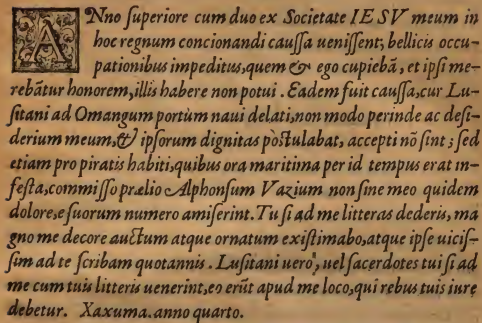 ANno ſuperiore cum duo ex Societate IESV meum in
hoc regnum concionandi cauſſa ueniſſent, bellicis occu-
pationibus impeditus, quem & ego cupiebā, et ipſi me-
rebātur honorem, illis habere non potui. Eadem fuit cauſſa, cur Lu-
ſitani ad Omangum portum naui delati, non modo perinde ac deſi-
derium meum, & ipſorum dignitas poſtulabat, accepti nō ſint; ſed
etiam pro piratis habiti, quibus ora maritima per id tempus erat in-
feſta, commiſſo prælio Alphonſum Vazium non ſine meo quidem
dolore, e ſuorum numero amiſerint. Tu ſi ad me litteras dederis, ma
gno me decore auctum atque ornatum exiſtimabo, atque ipſe uiciſ-
ſim ad te ſcribam quotannis. Luſitani uero, uel ſacerdotes tui ſi ad
me cum tuis litteris uenerint, eo erūt apud me loco, qui rebus tuis iure
debetur. Xaxuma. anno quarto.